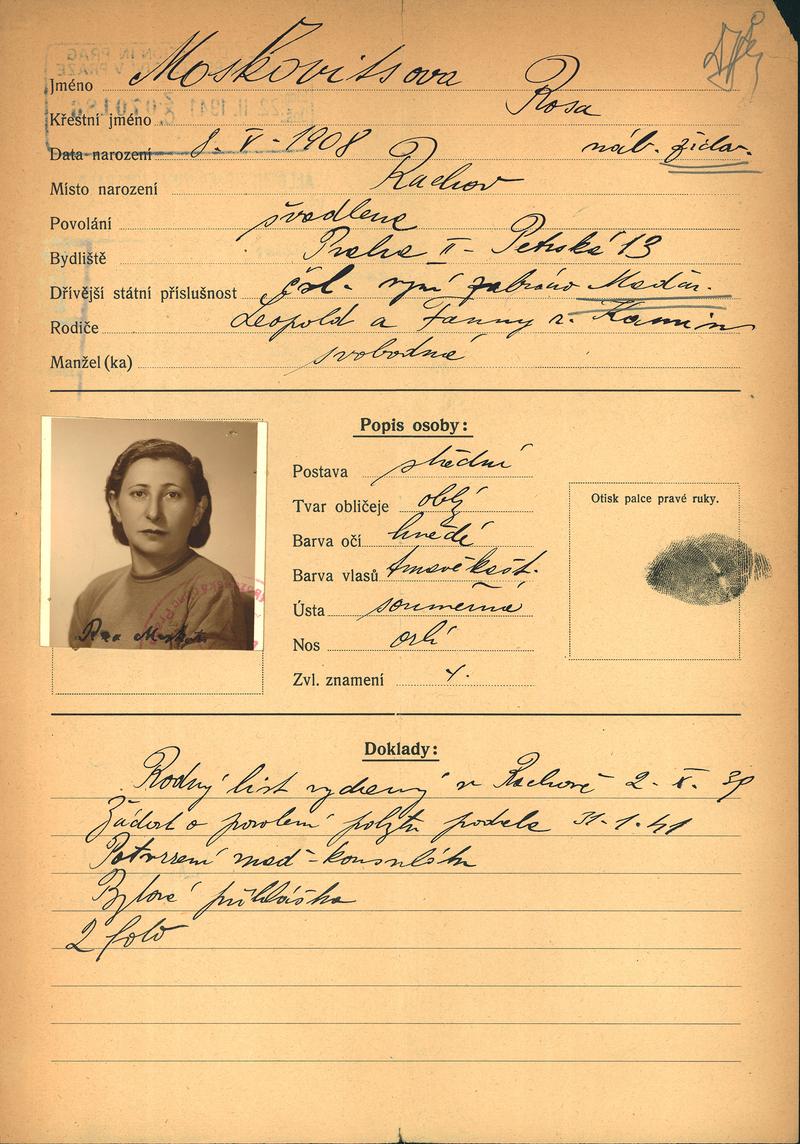 Jméno Moskovitsova
Křestní jméno Rosa
Data narození 8. V. 1908 náb. židov.
Místo narození Rachov
Povolání švadlena
Bydliště Praha II - Petrská 13
Dřívější státní příslušnost čsl. nyní Maďar.
Rodiče Leopold a Fanny r. Kamin
Manžel (ka) svobodná
Popis osoby:
Postava střední
Tvar obličeje oblý
Barva očí hnědé
Barva vlasů tmavě kašt.
Ústa souměrná
Nos orlí
Zvl. znamení
Otisk palce pravé ruky.
Doklady:
Rodný list vydaný v Rachově 2. X. 39
Žádost o povolení pobytu podala 31.1.41
Potvrzení maď. konsulátu
Bytová přihláška
2 foto